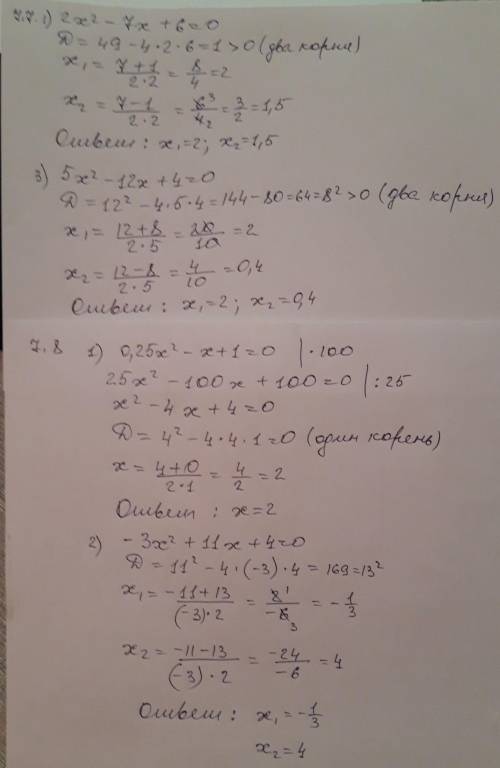 7.7. 1) 2x² - 7x + 6 = 0
Д = 49 - 4·2·6 = 1 > 0 (два корня)
x₁ = (7+1)/(2·2) = 8/4 = 2
x₂ = (7-1)/(2·2) = 6³/4₂ = 3/2 = 1,5
Ответ: x₁=2; x₂=1,5
3) 5x² - 12x + 4 = 0
Д = 12² - 4·5·4 = 144 - 80 = 64 = 8² > 0 (два корня)
x₁ = (12+8)/(2·5) = 20/10 = 2
x₂ = (12-8)/(2·5) = 4/10 = 0,4
Ответ: x₁=2; x₂=0,4
7.8 1) 0,25x² - x + 1 = 0 |·100
25x² - 100x + 100 = 0 |:25
x² - 4x + 4 = 0
Д = 4² - 4·4·1 = 0 (один корень)
x = (4+0)/(2·1) = 4/2 = 2
Ответ: x=2
2) -3x² + 11x + 4 = 0
Д = 11² - 4·(-3)·4 = 169 = 13²
x₁ = (-11+13)/((-3)·2) = 2¹/-6₃ = -1/3
x₂ = (-11-13)/((-3)·2) = -24/-6 = 4
Ответ: x₁ = -1/3
x₂ = 4